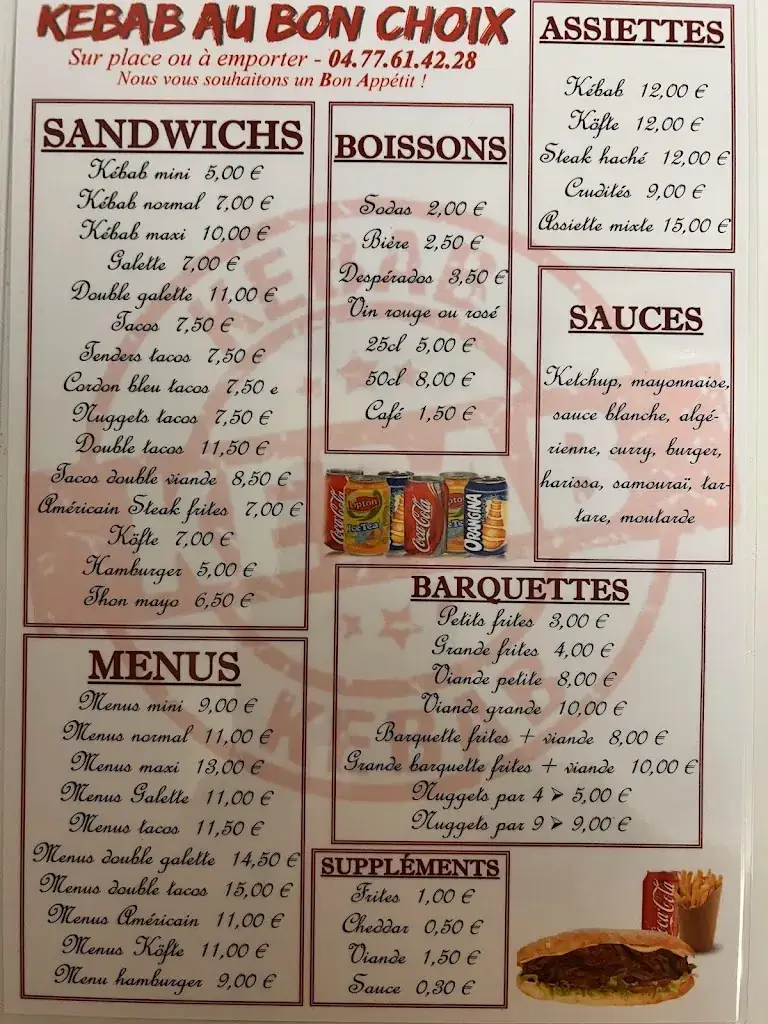 KEBAB AU BON CHOIX
Sur place ou à emporter - 04.77.61.42.28
Nous vous souhaitons un Bon Appétit !
SANDWICHS
Kébab mini 5,00 €
Kébab normal 7,00 €
Kébab maxi 10,00 €
Galette 7,00 €
Double galette 11,00 €
Tacos 7,50 €
Tenders tacos 7,50 €
Cordon bleu tacos 7,50 e
Nuggets tacos 7,50 €
Double tacos 11,50 €
Tacos double viande 8,50 €
Américain Steak frites 7,00 €
Köfte 7,00 €
Hamburger 5,00 €
Thon mayo 6,50 €
MENUS
Menus mini 9,00 €
Menus normal 11,00 €
Menus maxi 13,00 €
Menus Galette 11,00 €
Menus tacos 11,50 €
Menus double galette 14,50 €
Menus double tacos 15,00 €
Menus Américain 11,00 €
Menus Köfte 11,00 €
Menu hamburger 9,00 €
BOISSONS
Sodas 2,00 €
Bière 2,50 €
Despérados 3,50 €
Vin rouge ou rosé
25cl 5,00 €
50cl 8,00 €
Café 1,50 €
Coca-Cola
Lipton
Ice Tea
Coca-Cola
ORANGINA
ASSIETTES
Kébab 12,00 €
Köfte 12,00 €
Steak haché 12,00 €
Crudités 9,00 €
Assiette mixte 15,00 €
SAUCES
Ketchup, mayonnaise,
sauce blanche, algé-
rienne, curry, burger,
harissa, samouraï, tar-
tare, moutarde
BARQUETTES
Petits frites 3,00 €
Grande frites 4,00 €
Viande petite 8,00 €
Viande grande 10,00 €
Barquette frites + viande 8,00 €
Grande barquette frites + viande 10,00 €
Nuggets par 4 ➢ 5,00 €
Nuggets par 9 ➢ 9,00 €
SUPPLÉMENTS
Frites 1,00 €
Cheddar 0,50 €
Viande 1,50 €
Sauce 0,30 €
KEBAB